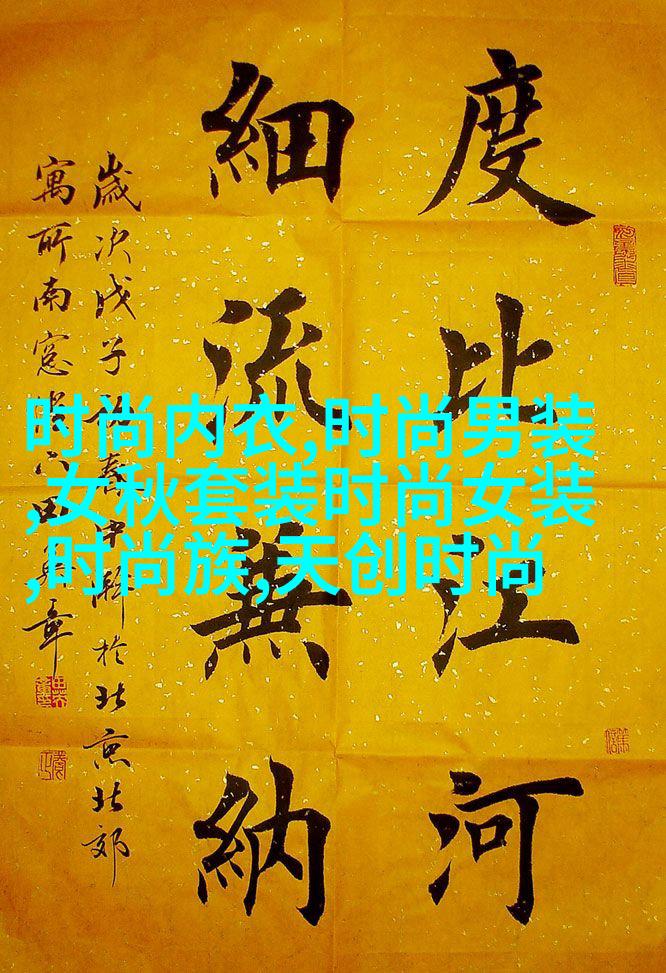 度比江河
細流兼納
歲次戊子 春 於北京北郊
寓所南窓 田 章
时尚内衣,时尚男装
,女秋套装时尚女装
,时尚族,天创时尚